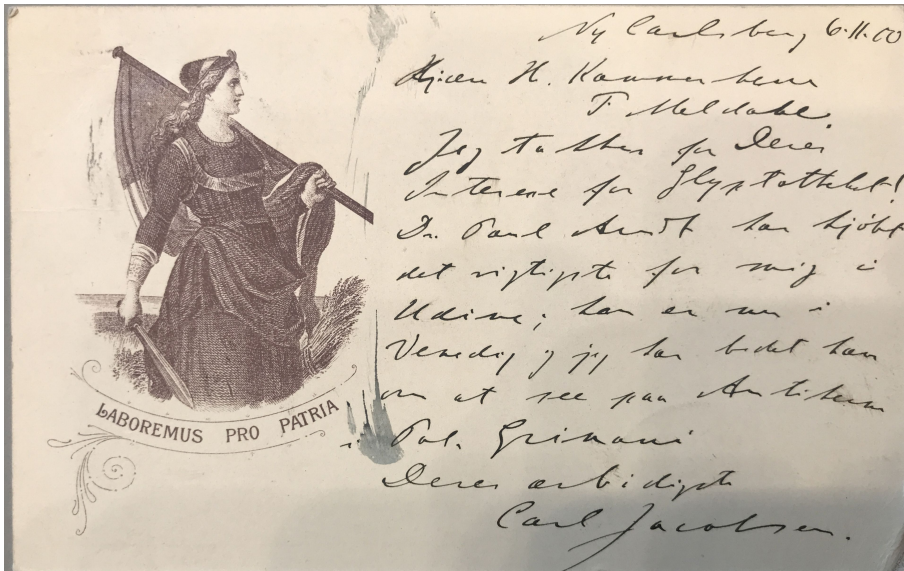 Ny Carlsberg 6.11.00
Kjære H. Kammerherre
F Meldahl.
Jeg takker for Deres
Interesse for Glyptotheket!
Dr. Paul Arndt har kjöbt
det vigtigste for mig i
Udine; han er nu i
Venedig og jeg har bedet ham
om at see paa Antikerne
i Pal. Grimani
Deres ærbødigste
Carl Jacobsen.
LABOREMUS PRO PATRIA